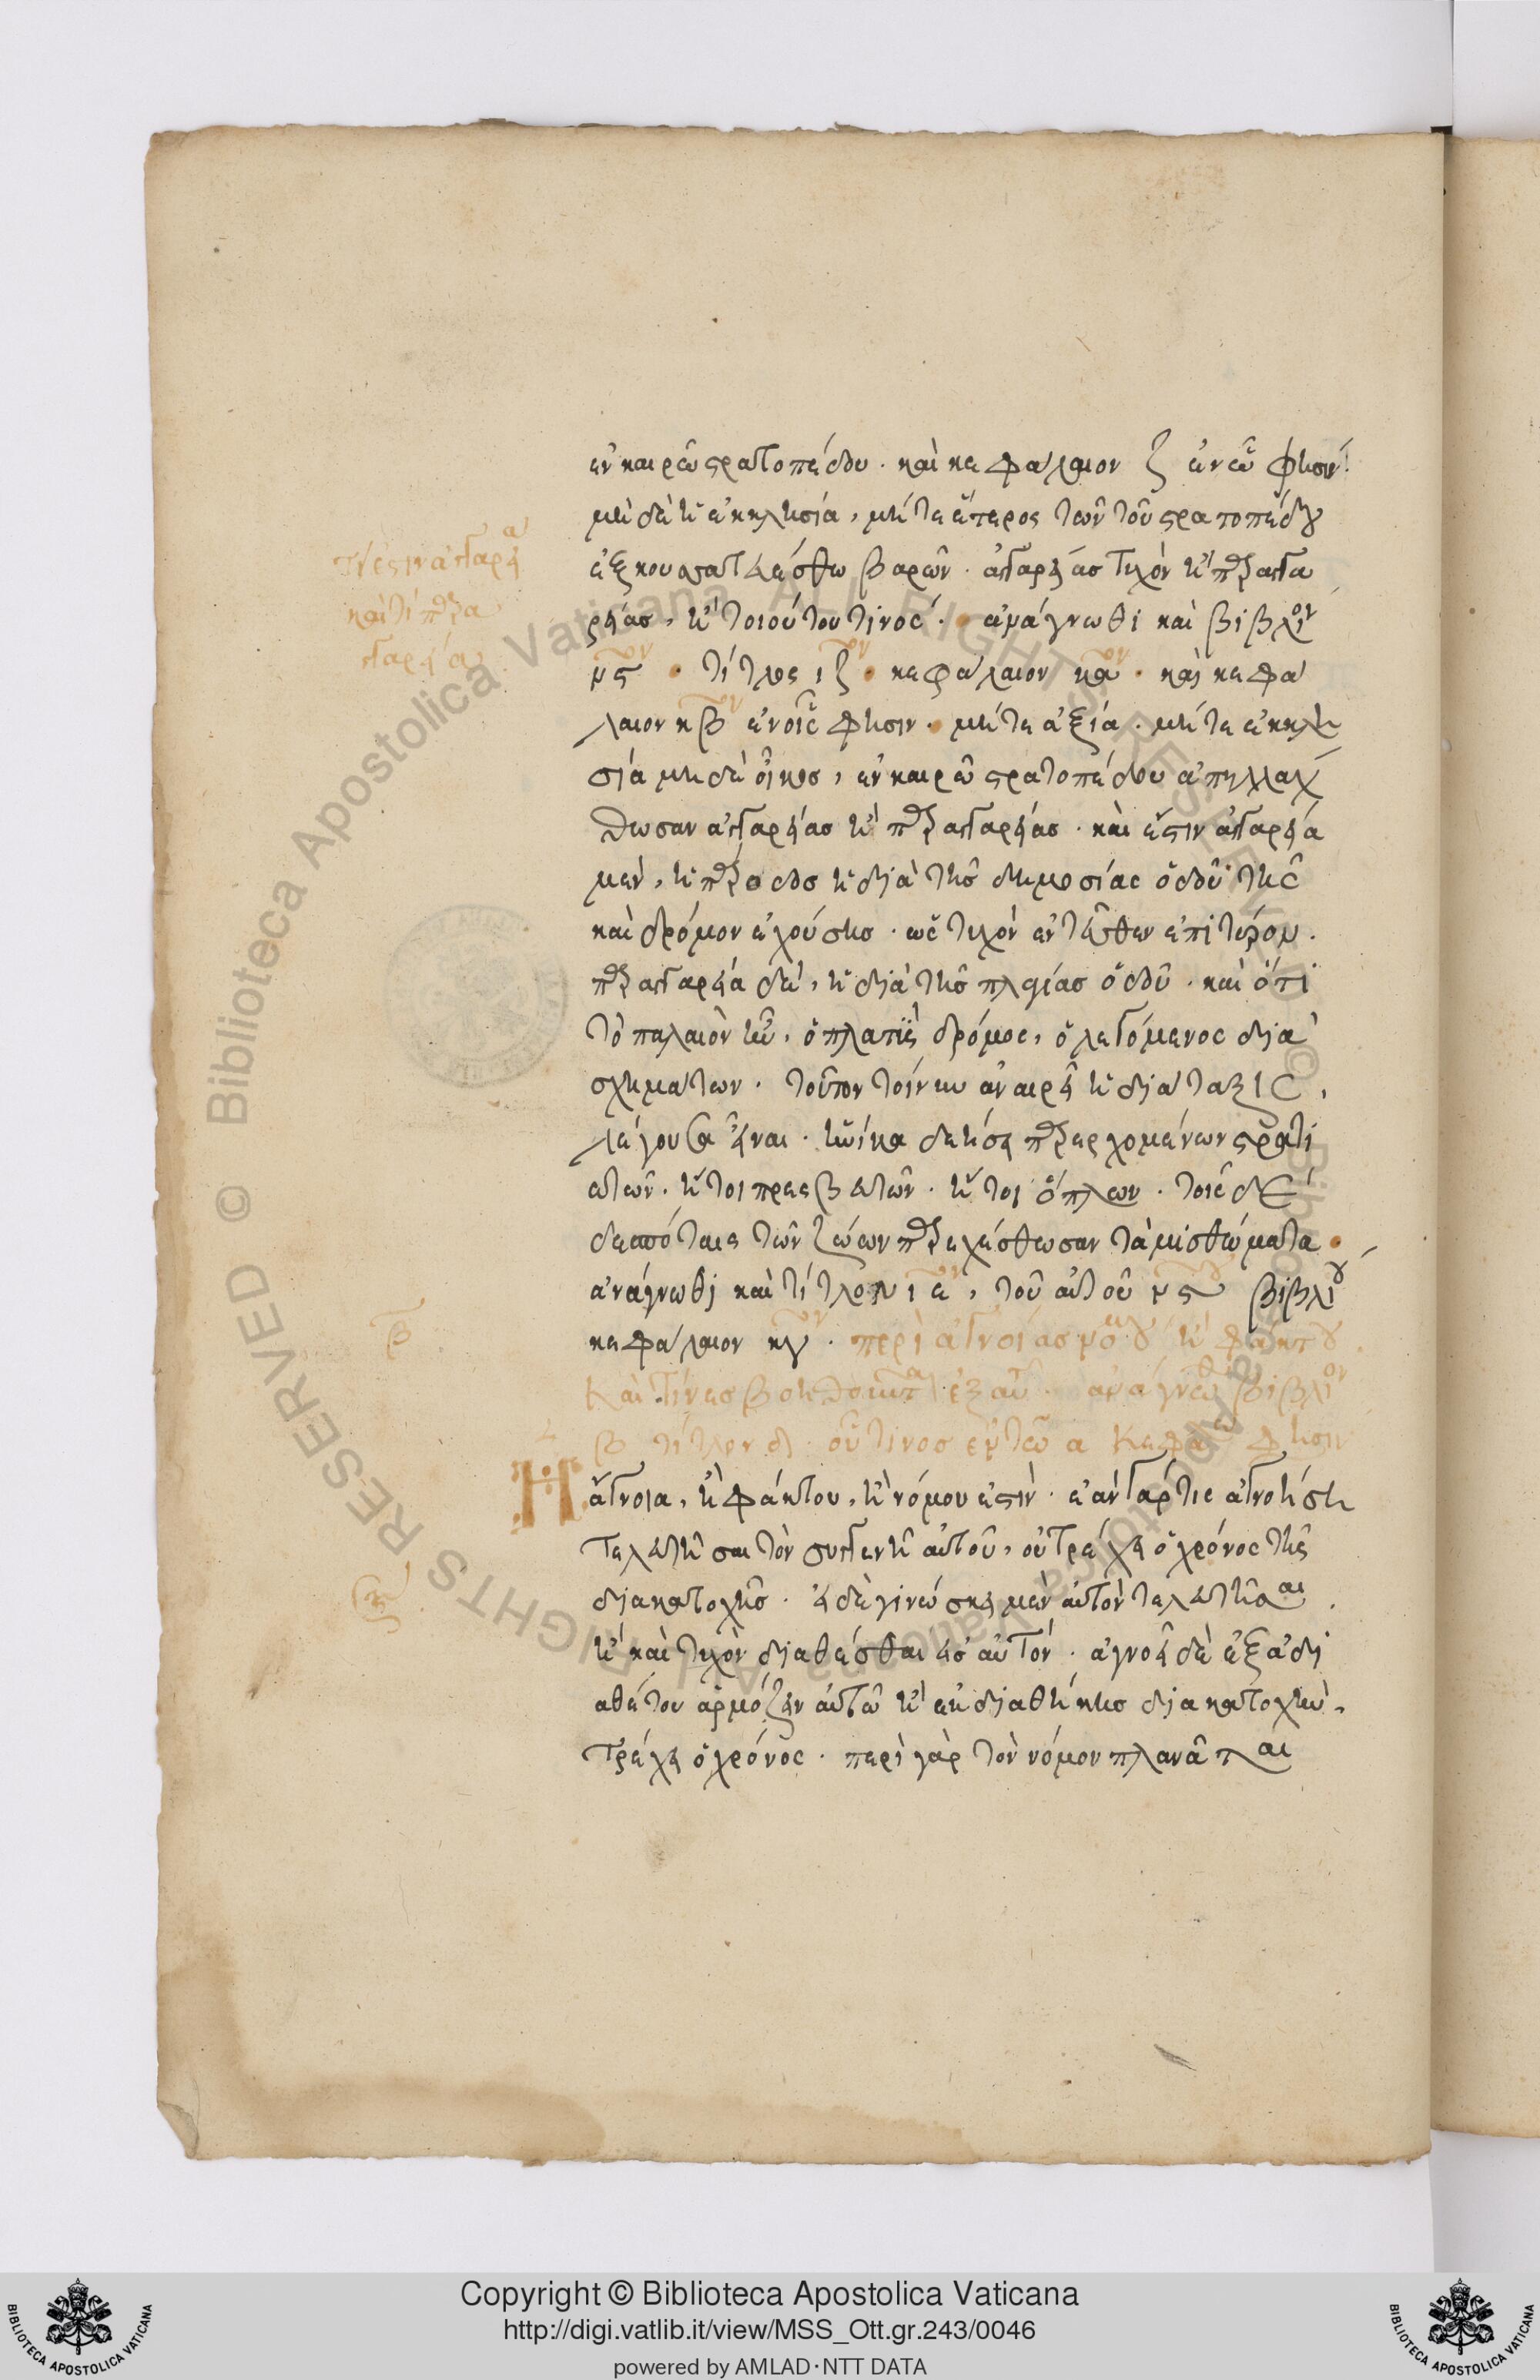 ἐν καιρῶ στρατοπέδου · καὶ κεφάλαιον ζ ἐν ὧ φησιν·
μὴ δὲ ἡ ἐκκλησία, μήτε ἕτερος τῶν τοῦ στρατοπέδου
ἐξκουσατευέσθω βαρῶν · ἀγγαρείας τυχὸν ἢ παραγγα
ρείας, ἢ τοιούτου τινός · ἀνάγνωθι καὶ βιβλίον
νς · τίτλος ιζ · κεφάλαιον κα · καὶ κεφά
λαιον κβ ἐν οἷς φησιν · μήτε ἀξία · μήτε ἐκκλη
σία μηδὲ οἶκος, ἐν καιρῶ στρατοπέδου ἀπηλλάχ
θωσαν ἀγγαρείας ἢ παραγγαρείας · καὶ ἔστιν ἀγγαρεία
μὲν, ἡ πάροδος ἡ διὰ τῆς δημοσίας ὁδοῦ τῆς
καὶ δρόμον ἐχούσης · ὡς τυχὸν ἐντεῦθεν ἐπὶ
παραγγαρεία δὲ, ἡ διὰ τῆς πλαγίας ὁδοῦ · καὶ ὅτι
τὸ παλαιὸν ἦν, ὁ πλατὺς δρόμος, ὁ λεγόμενος διὰ
σχημάτων · τοῦτον τοίνυν ἀναιρεῖ ἡ διάταξις,
λέγουσα εἶναι · ἡνίκα δεήσει παρερχομένων στρατι
ωτῶν · ἤτοι πρεσβευτῶν · ἤτοι ὅπλων · τοῖς δε
δεσπόταις τῶν ζώων παρεχέσθωσαν τὰ μισθώματα ·
ἀνάγνωθι καὶ τίτλον ιε, τοῦ αὐτοῦ νς βιβλίου
κεφάλαιον κγ · περὶ ἀγνοίας νόμου ἢ φάκτου
καὶ τίνες βοηθοῦνται ἐξ αὐτῶν · ἀνάγνωθι βιβλίον
β τίτλον δ · οὗτινος ἐν τῶ α κεφαλαίω φησιν
Ἡ ἄγνοια, ἢ φάκτου, ἢ νόμου ἐστὶν · ἐὰν γάρ τις ἀγνοήση
τελευτῆσαι τὸν συγγενῆ αὐτοῦ, οὐ τρέχει ὁ χρόνος τῆς
διακατοχῆς · εἰ δὲ γινώσκει μὲν αὐτὸν τελευτῆσαι
ἢ καὶ τυχὸν διαθέσθαι εἰς αὐτόν · ἀγνοεῖ δὲ ἐξ ἀδι
αθέτου ἁρμόζειν αὐτῶ ἢ ἐκ διαθήκης διακατοχὴν,
τρέχει ὁ χρόνος · περὶ γὰρ τὸν νόμον πλανᾶται
τί ἐστιν ἀγγαρεία
καὶ τί παρα
γγαρεία
Copyright © Biblioteca Apostolica Vaticana
http://digi.vatlib.it/view/MSS_Ott.gr.243/0046
powered by AMLAD·NTT DATA
BIBLIOTECA APOSTOLICA VATICANA
BIBLIOTECA APOSTOLICA VATICANA